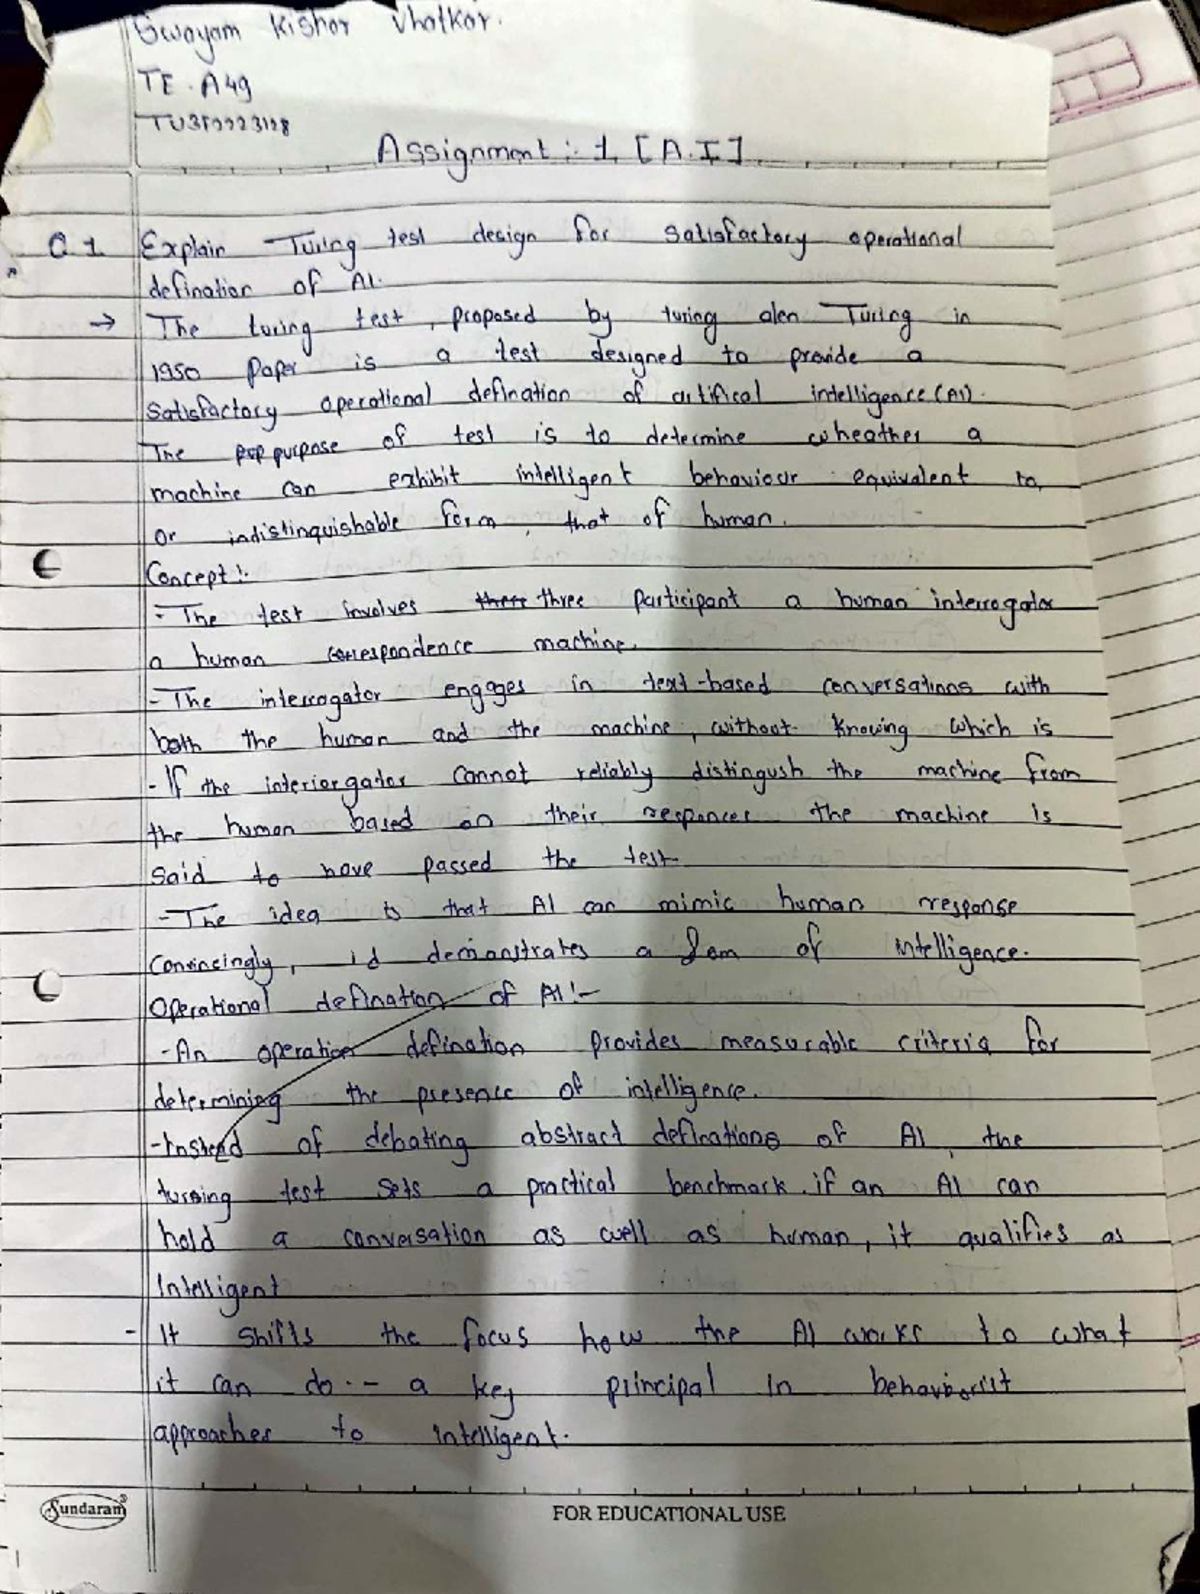 Swayam Kishor Vhatkar.
TE. A49
TU3F2223128
Assignment :- 1. [A.I]
Q.1 Explain Turing test design for satisfactory operational
defination of AI.
→ The turing test, proposed by turing alen Turing in
1950 paper is a test designed to provide a
satisfactory operational defination of artifical intelligence (AI).
The purpose of test is to determine wheather a
machine can exhibit intelligent behaviour equivalent to,
or indistinquishable form, that of human.
Concept :-
- The test involves three participant a human interrogator
a human correspondence machine.
- The interrogator engages in text-based conversations with
both the human and the machine, without knowing which is
- If the interiorgator cannot reliably distingush the machine from
the human based on their responces the machine is
said to have passed the test.
- The idea is that AI can mimic human response
convincingly, id demonstrates a of intelligence.
Operational defination of AI :-
- An operation defination provides measurable criteria for
determining the presence of intelligence.
- Instead of debating abstract definations of AI, the
turing test sets a practical benchmark. if an AI can
hold a conversation as well as human, it qualifies as
Intelligent
- It shifts the focus how the AI works to what
it can do. - a key principal in behaviorist
approaches to intelligent.
Sundaram
FOR EDUCATIONAL USE